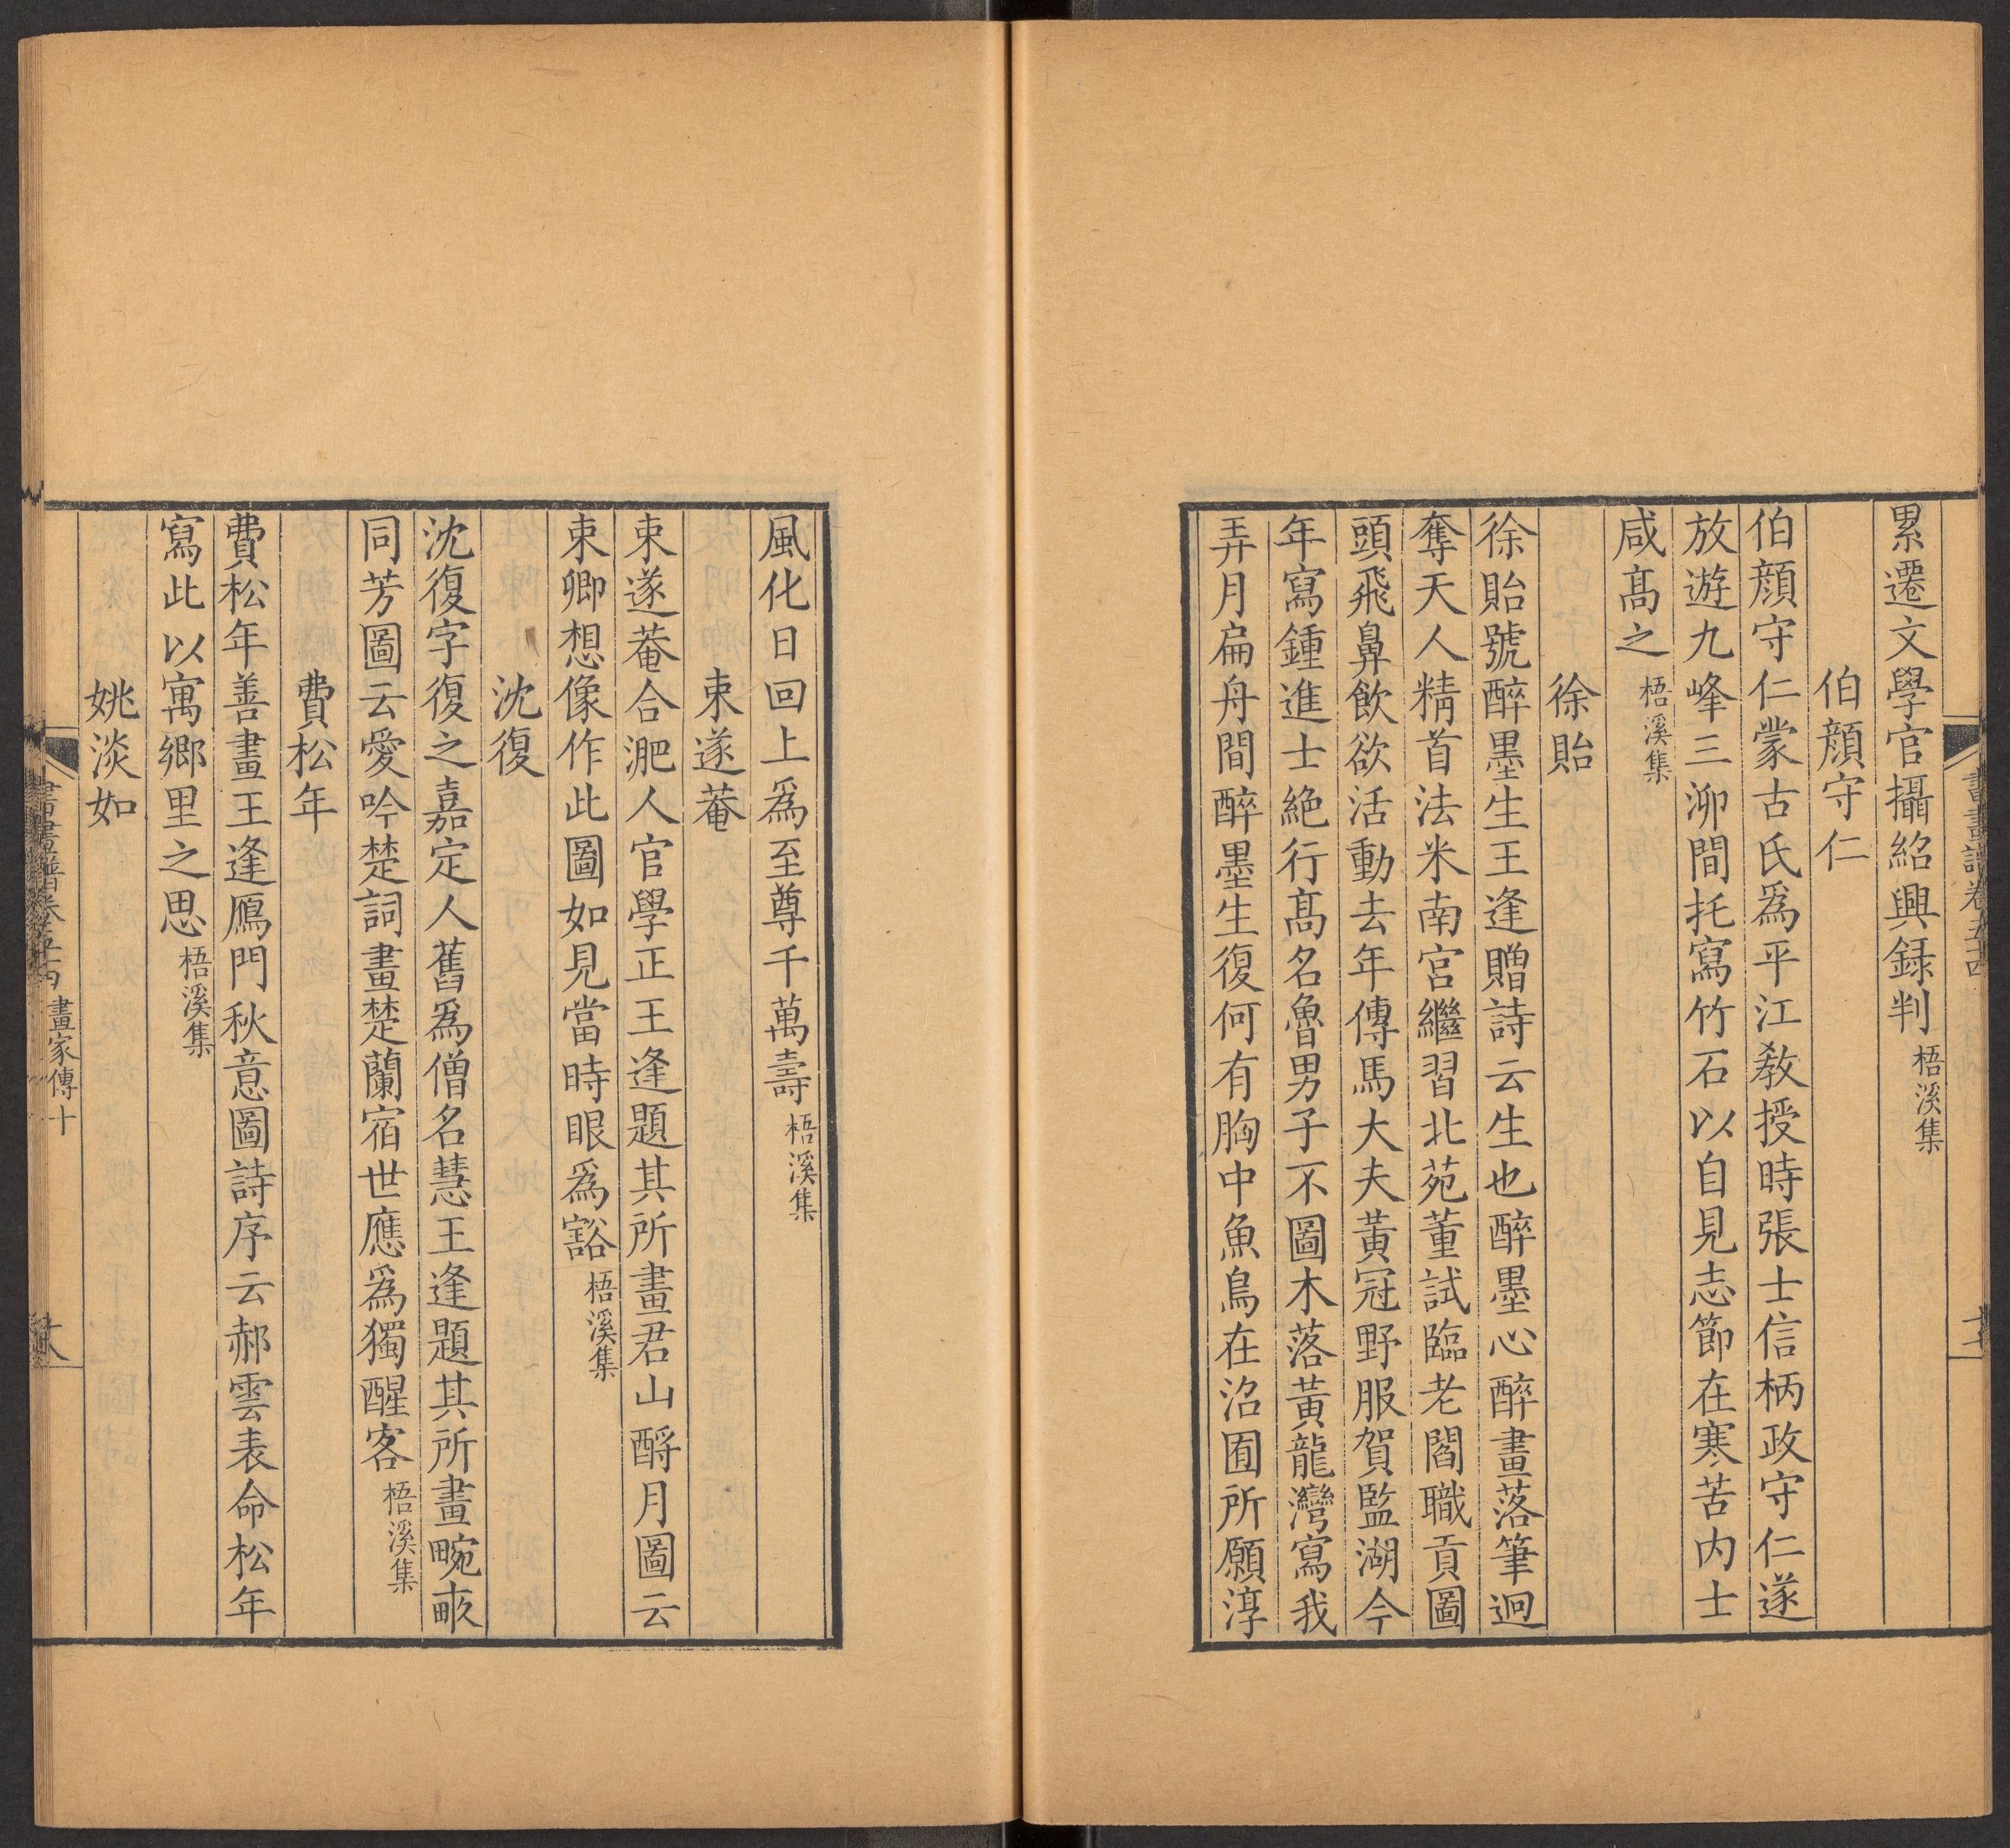 累遷文學官攝紹興録判 梧溪集
伯顔守仁
伯顔守仁蒙古氏爲平江敎授時張士信柄政守仁遂
放遊九峰三泖間托寫竹石以自見志節在寒苦内士
咸髙之 梧溪集
徐貽
徐貽號醉墨生王逢贈詩云生也醉墨心醉畫落筆迥
奪天人精首法米南宫繼習北苑董試臨老閻職貢圖
頭飛鼻飲欲活動去年傳馬大夫黄冠野服賀監湖今
年寫鍾進士絶行髙名魯男子不圖木落黄龍灣寫我
弄月扁舟間醉墨生復何有胸中魚鳥在沼囿所願淳
風化日回上爲至尊千萬壽 梧溪集
束遂菴
束遂菴合淝人官學正王逢題其所畫君山酹月圖云
束卿想像作此圖如見當時眼爲豁 梧溪集
沈復
沈復字復之嘉定人舊爲僧名慧王逢題其所畫畹畝
同芳圖云愛吟楚詞畫楚蘭宿世應爲獨醒客 梧溪集
費松年
費松年善畫王逢鴈門秋意圖詩序云郝雲表命松年
寫此以寓鄉里之思 梧溪集
姚淡如
書畫譜卷五十四 畫家傳十
十八